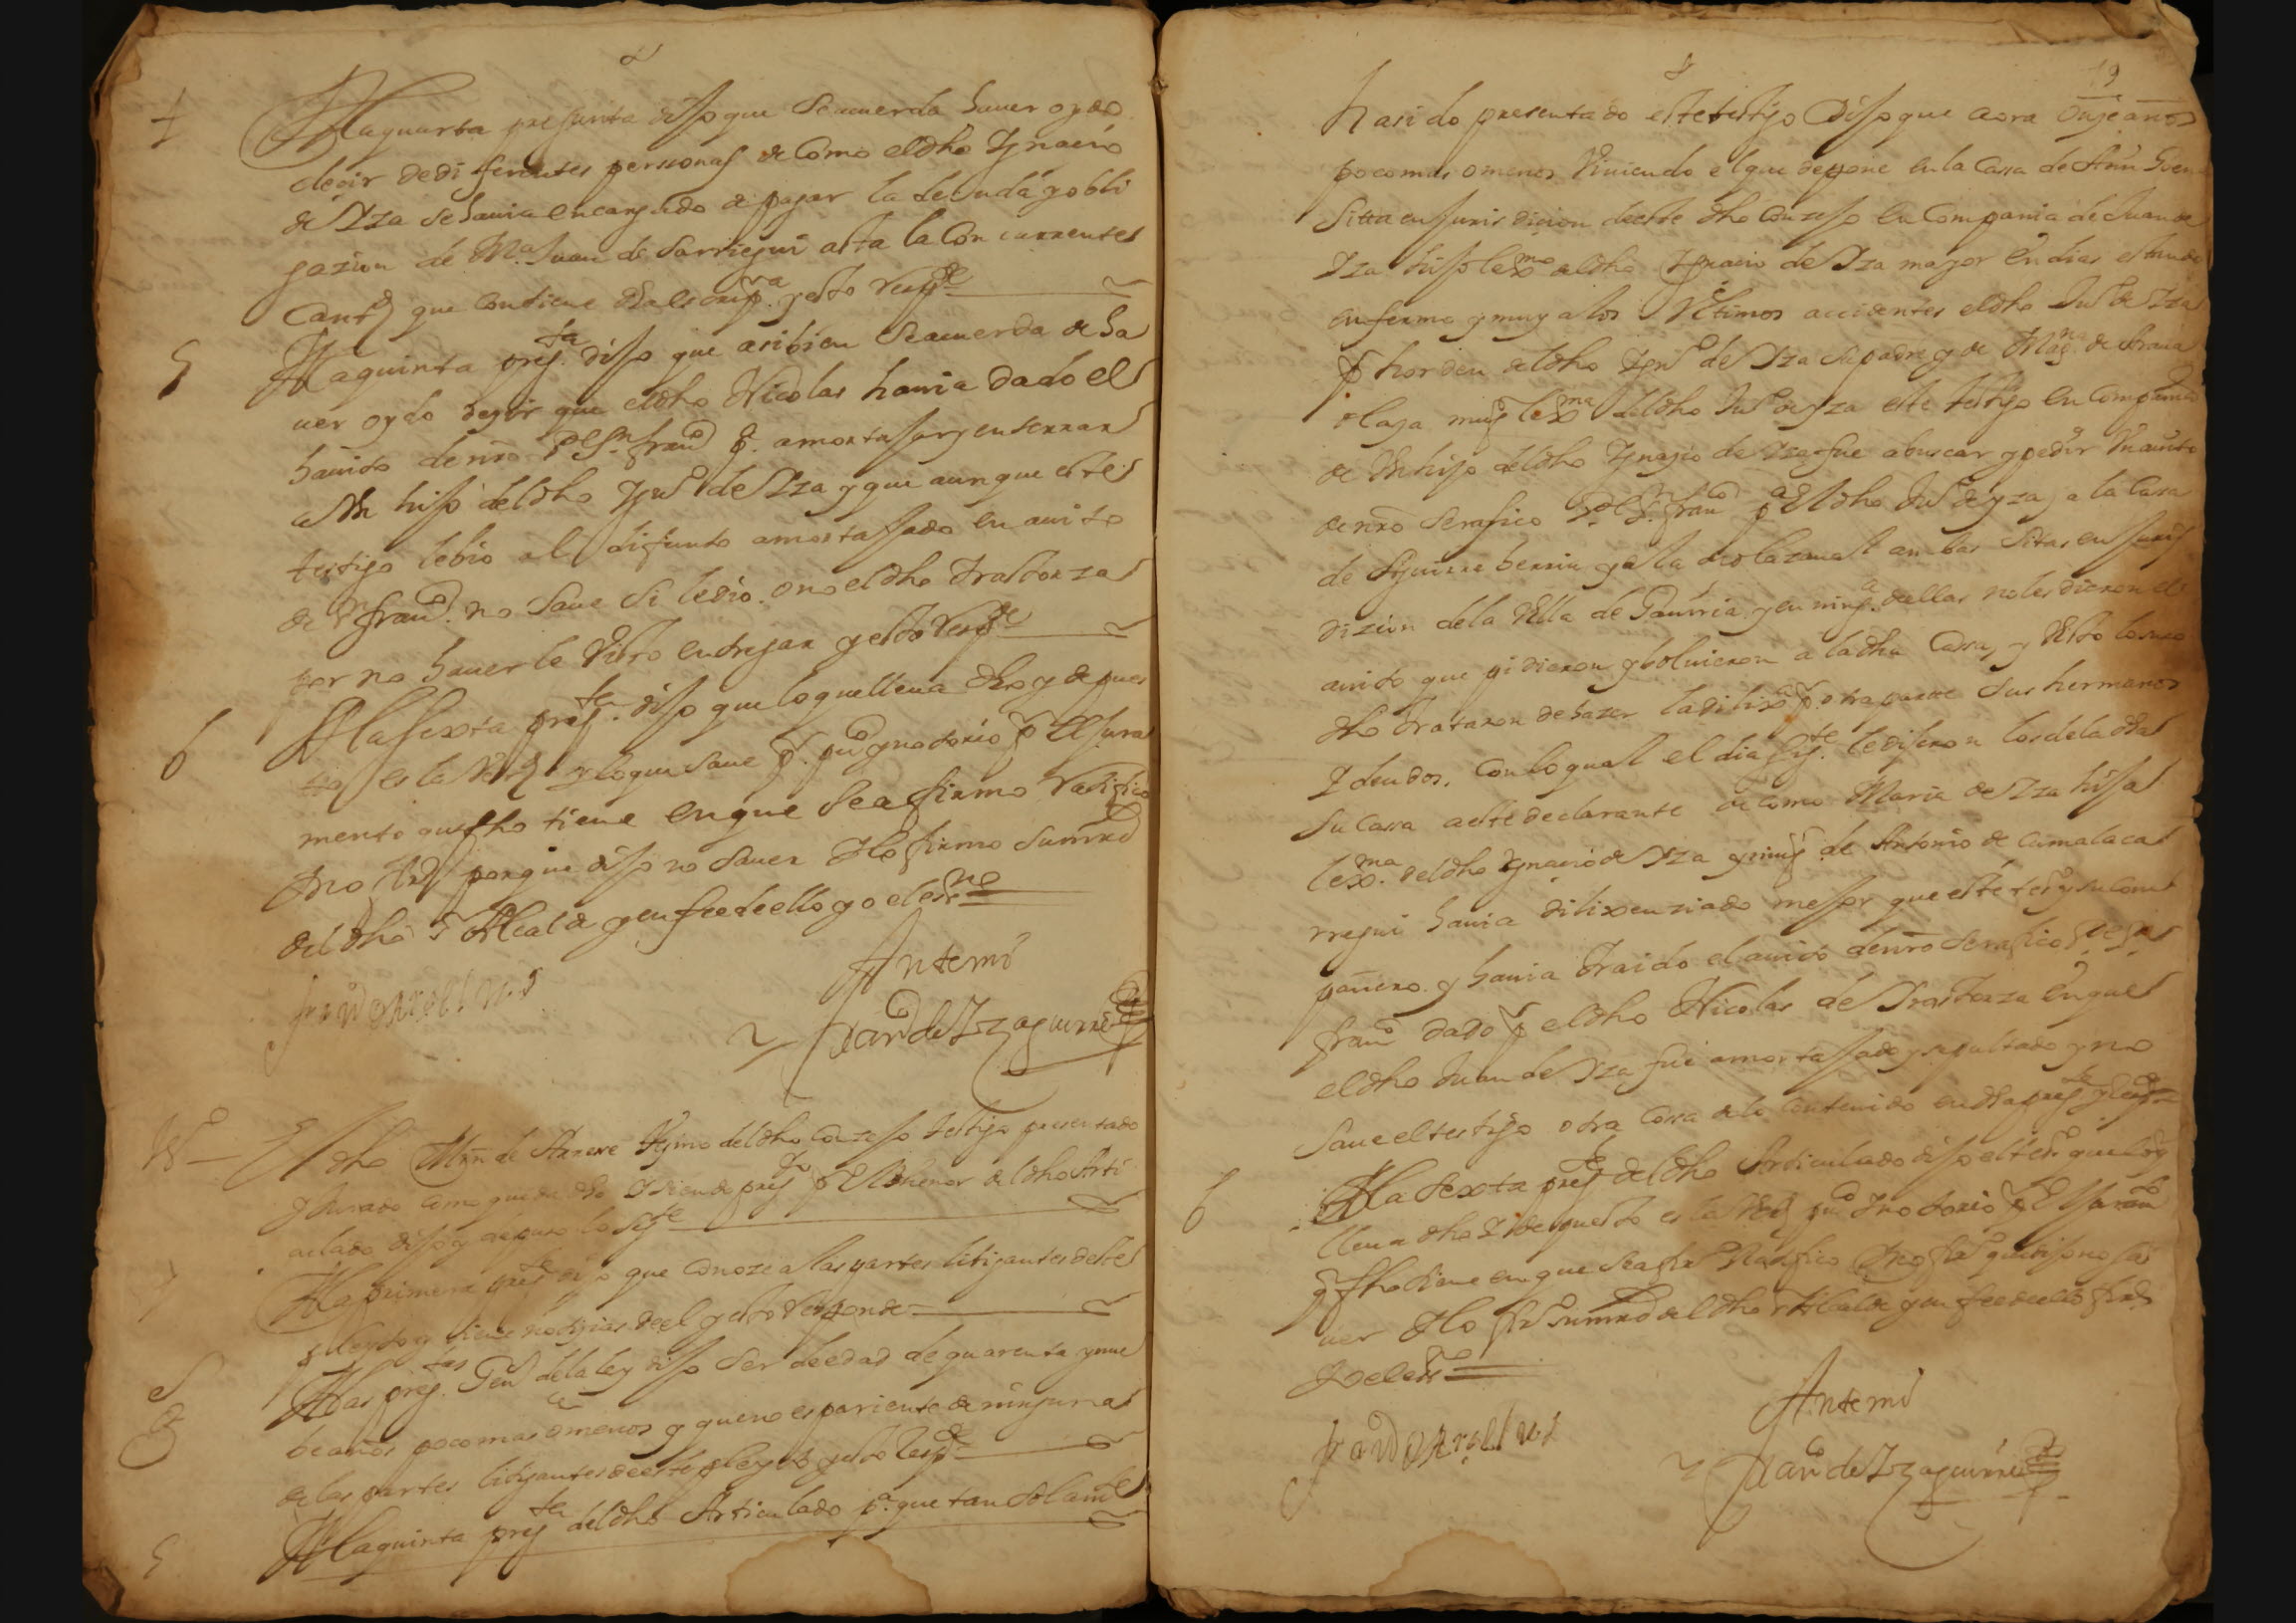 4
A la quarta pregunta dijo que se acuerda hauer oydo
deçir de diferentes personas de como el dho Ygnaçio
de Yza se hauia encargado de pagar la deuda y obli
gazion de Mn. Juan de Sarriegui asta la concurrente
cantd que contiene dha escripra. y esto respde
5
A la quinta pregta. dijo que asibien se acuerda de ha
uer oydo deçir que el dho Nicolas hauia dado el
hauito de nro Pe Sn. franco pa. amortajar y enterrar
a Un hijo del dho Ygno de Yza y que aunque este
testigo le bio al difunto amortajado en auito
de Sn franco. no saue si le dio o no el dho Trasborza
por no hauerle Visto entregar y esto respde
6
A la sexta pregta. dijo que lo que lleua dho y depues
to es la Verd y lo que saue pco y notorio so el jura
mento que fho tiene en que se afirmo ratifico
y no fir porque dijo no sauer y lo firmo su mrd
del dho sr Alcalde y en fee de ello yo el essno
Ante mi
Franco de Yzaguirre
El dho Mrn de Arrese Vezino del dho conzejo testigo presentado
y jurado como queda dho y siendo pregdo por el thenor del dho Arti
culado dijo y depuso lo sigte
A la primera pregta dijo que conoze a las partes litigantes deste
pleyto y tiene notiçias de el y esto responde
A las pregtas. Gens de la ley dijo ser de edad de quarenta y nue
be años poco mas o menos y que no es pariente de ninguna
de las partes litigantes de este pleyto y esto respde
5
A la quinta pregta del dho Articulado pa. que tan solamte
19
ha sido presentado este testigo Dijo que aora onze años
poco mas o menos Viniendo el que depone en la casa de
Sitta en jurisdiçion de este dho conzejo en compania de Juan de
Yza hijo lexmo del dho Ygnacio de Yza mayor en dias estando
enfermo y muy a los Vltimos accidentes el dho Juo de Yza
por horden del dho Ygno de Yza su padre y de Magna de Arana
olaga muger lexma del dho Juo de Yza este testigo en compania
de Un hijo del dho Ygnaçio de Yza fue a buscar y pedir Un auito
de nro Serafico Pe Sn. franco pa El dho Juo de Yza a la Casa
de Aguirre berria y a la de olazaual ambas sitas en juris
dizion de la Villa de Gauiria y en ninga. de ellas no les dieron el
auito que pidieron y boluieron a la dha Cassa, y Visto lo suso
dho trataron de hazer la dilixa por otra parte sus hermanos
y deudos. con lo qual el dia sigte. le dijeron los de la dha
su cassa a este declarante de como Maria de Yza hija
lexma. del dho Ygnaçio de Yza y muger de Antonio de Cumalaca
rregui hauia dilixenziado mejor que este tesgo y su com
pañero. y hauia traido el auito de nro Serafico Pe Sn
franco dado por el dho Nicolas de Trasborza en que
el dho Juan de Yza fue amortajado y sepultado y no
saue el testigo otra cossa de lo contenido en dha pregta y respde
6
A la sexta pregta del dho Articulado dijo el tesgo que lo q
lleua dho y depuesto es la Verd pco y notorio so El juramto
q fho tiene en que se afirmo Ratifico y no firmo que dijo no sa
uer y lo firmo su mrd del dho sr Alcalde y en fee de ello firme
yo el essno
Ante mi
Franco de Yzaguirre